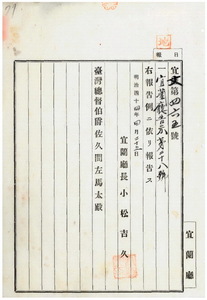 報日
宜文第四六五號
一宜蘭廳告示第二十八號
右報告例ニ依リ報告ス
明治四十四年
宜蘭廳長 小松吉久
臺灣總督伯爵佐久間左馬太殿
宜蘭廳